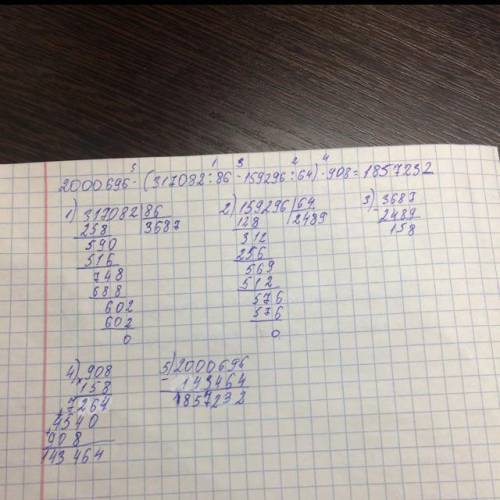 5 1 3 2 4
2000696 - (317082 : 86 - 159296 : 64) · 908 = 1857232
1) 317082 | 86 2) 159296 | 64 3) 3687
258 3687 128 2489 - 2489
590 312 158
516 256
748 569
688 512
602 576
602 576
0 0
4) 908 5) 2000696
× 158 - 143464
7264 1857232
+ 4540
908
143 464